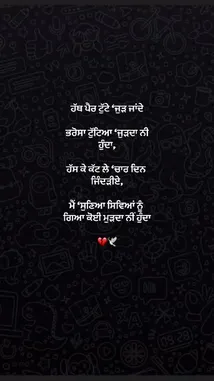 ਹੱਥ ਪੈਰ ਟੁੱਟੇ ‘ਜੁੜ ਜਾਂਦੇ
ਭਰੋਸਾ ਟੁੱਟਿਆ ‘ਜੁੜਦਾ ਨੀ
ਹੁੰਦਾ,
ਹੱਸ ਕੇ ਕੱਟ ਲੇ ‘ਚਾਰ ਦਿਨ
ਜਿੰਦੜੀਏ,
ਮੈਂ ‘ਸੁਣਿਆ ਸਿਵਿਆਂ ਨੂੰ
ਗਿਆ ਕੋਈ ਮੁੜਦਾ ਨੀਂ ਹੁੰਦਾ
💔🕊